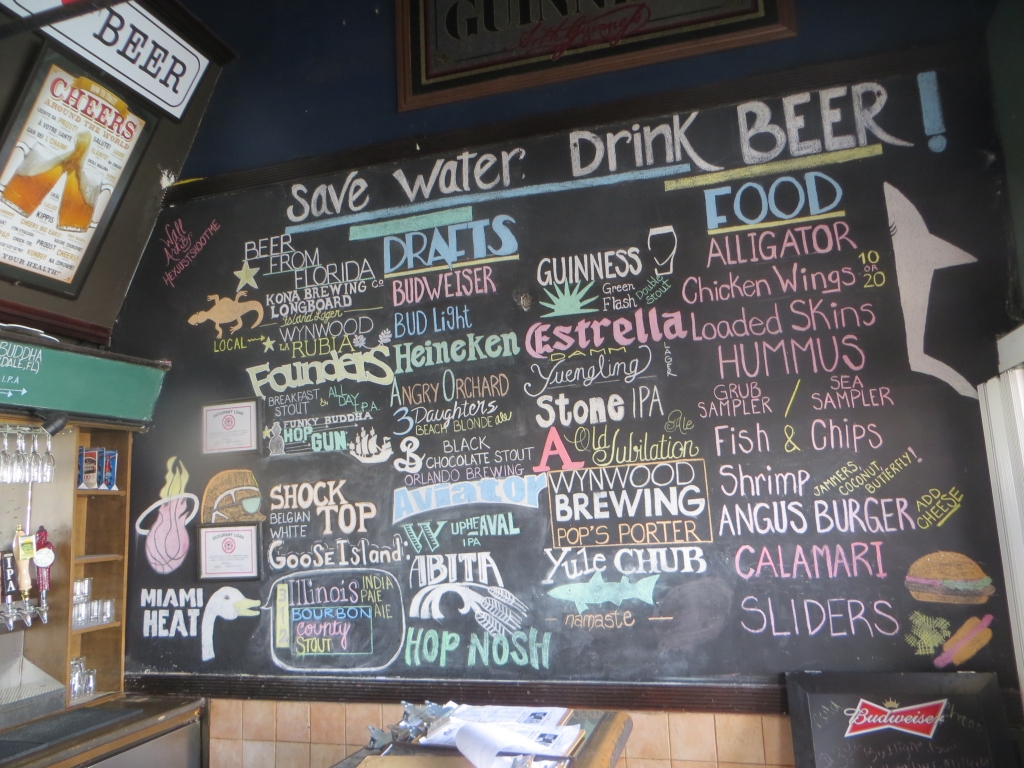 BEER
CHEERS
AROUND THE WORLD
KIPPIS
YOUR HEALTH!
GUINN
Save Water. Drink BEER!
Wall
Art by
BEER
FROM
FLORIDA
KONA BREWING CO
LONGBOARD
Island Lager
LOCAL
WYNWOOD
LA RUBIA
Founders
BREAKFAST
STOUT
ALL
DAY
I.P.A.
FUNKY BUDDHA
HOP GUN
SHOCK
TOP
BELGIAN
WHITE
GOOSE ISLAND
Illinois
INDIA
PALE
ALE
BOURBON
county
STOUT
312
MIAMI
HEAT
DRAFTS
BUDWEISER
BUD Light
Heineken
ANGRY ORCHARD
3 Daughters
BEACH BLONDE ale
BLACK
CHOCOLATE STOUT
ORLANDO BREWING
Aviator
W UPHEAVAL
IPA
ABITA
HOP NOSH
GUINNESS
Green
Flash
Double
Stout
Estrella
DAMM
Yuengling
LAGER
Stone IPA
A Old Jubilation
Ale
WYNWOOD
BREWING
POP'S PORTER
Yule CHUB
- namaste -
FOOD
ALLIGATOR
Chicken Wings 10 OR 20
Loaded Skins
HUMMUS
GRUB
SAMPLER / SEA
SAMPLER
Fish & Chips
Shrimp
JAMMERS,
COCONUT,
BUTTERFLY!
ANGUS BURGER
ADD
CHEESE
CALAMARI
SLIDERS
BUDDHA
DALE, FL)
I.P.A
IPA
Budweiser